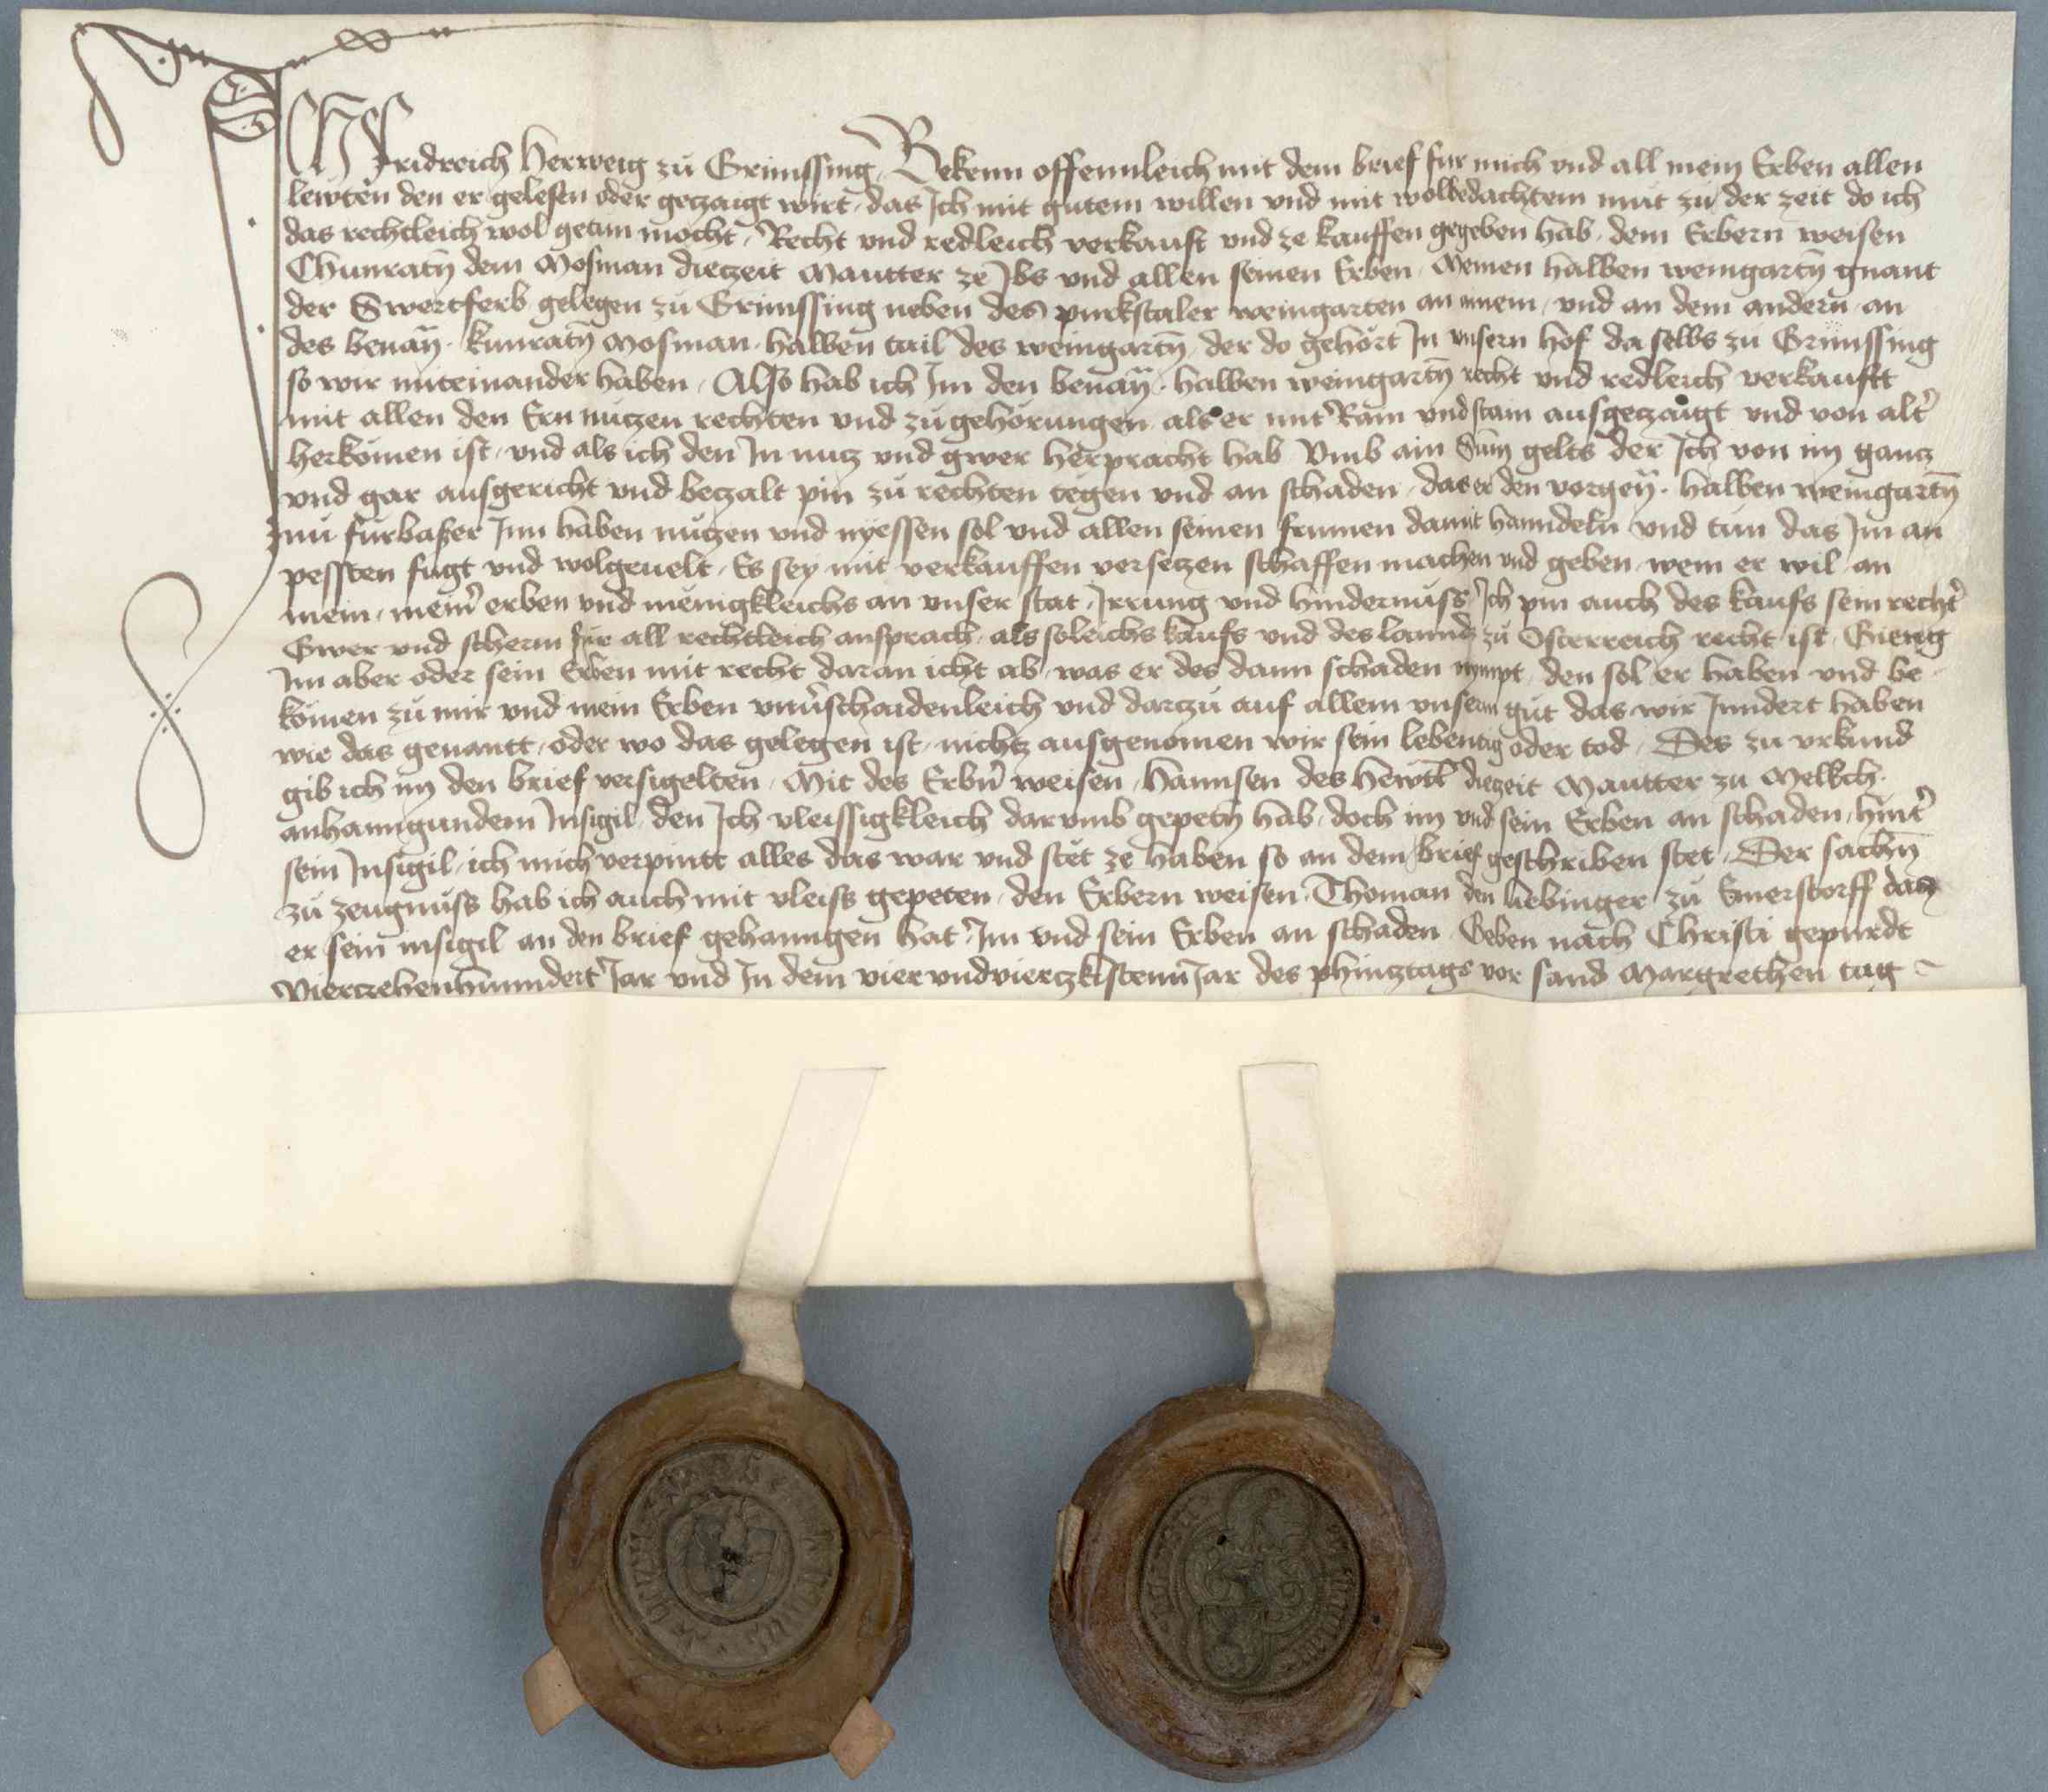 ICH Fridreich Herweig zu Grimssing Bekenn offennleich mit dem brief fur mich vnd all mein Erben allen
lewten den er gelesen oder geczaigt wirt das Ich mit gutem willen vnd mit wolbedachtem mut zu der zeit do ich
das rechtleich wol getun mocht Recht vnd redleich verkauft vnd ze kauffen gegeben hab dem Erbern weisen
Chunratn dem Mosman diezeit Mautter ze Ibs vnd allen seinen Erben Meinen halben weingartn gnant
der Swertferb gelegen zu Grimssing neben des purkstaler weingarten an ainem vnd an dem andern an
des benan kunratn Mosman halben tail des weingartn der do gehort In vnsern hof daselbs zu Grimssing
so wir miteinander haben Also hab ich Im den benan halben weingartn recht vnd redleich verkaufft
mit allen den Ern nuczen rechten vnd zugehorungen als er mit Rain vnd stain ausgeczaigt vnd von alt
herkomen ist vnd als ich den In nucz vnd gwer herpracht hab Vmb ain Sum gelts der Ich von im gancz
vnd gar ausgericht vnd beczalt pin zu rechten tegen vnd an schaden das er den vorgen halben weingartn
nu furbaßer Inn haben nuczen vnd nyessen sol vnd allen seinen frumen damit hanndeln vnd tun das Im an
pessten fugt vnd wolgeuelt Es sey mit verkauffen verseczen schaffen machen vnd geben wem er wil an
mein meinr erben vnd menigkleichs an vnser stat Irrung vnd hindernuss Ich pin auch des kaufs sein recht
Gwer vnd scherm fur all rechtleich ansprach als soleichs kaufs vnd des lannds zu Osterreich recht ist Gieng
Im aber oder sein Erben mit recht daran icht ab was er des dann schaden nympt den sol er haben vnd be
komen zu mir vnd mein Erben vnuerschaidenleich vnd darczu auf allem vnserm gut das wir Inndert haben
wie das genantt oder wo das gelegen ist nichtz ausgenomen wir sein lebentig oder tod Des zu vrkund
gib ich im den brief versigelten Mit des Erbern weisen Hannsen des diezeit Mautter zu Melkch
anhanngundem Insigil den Ich vleissigkleich darumb gepetn hab doch im vnd sein Erben an schaden hint
sein Insigil ich mich verpintt alles das war vnd stet ze haben so an dem brief geschriben stet Der sachn
zu zeugnuss hab ich auch mit vleiss gepeten den Erbern weisen Thoman den liebinger zu Emerstorff daz
er sein insigil an den brief gehanngen hat Im vnd sein Erben an schaden Geben nach Christi gepurdt
Vierczehenhundert Iar vnd In dem vier vndvierczkistenn Iar des phincztags vor sand Margrethen tag